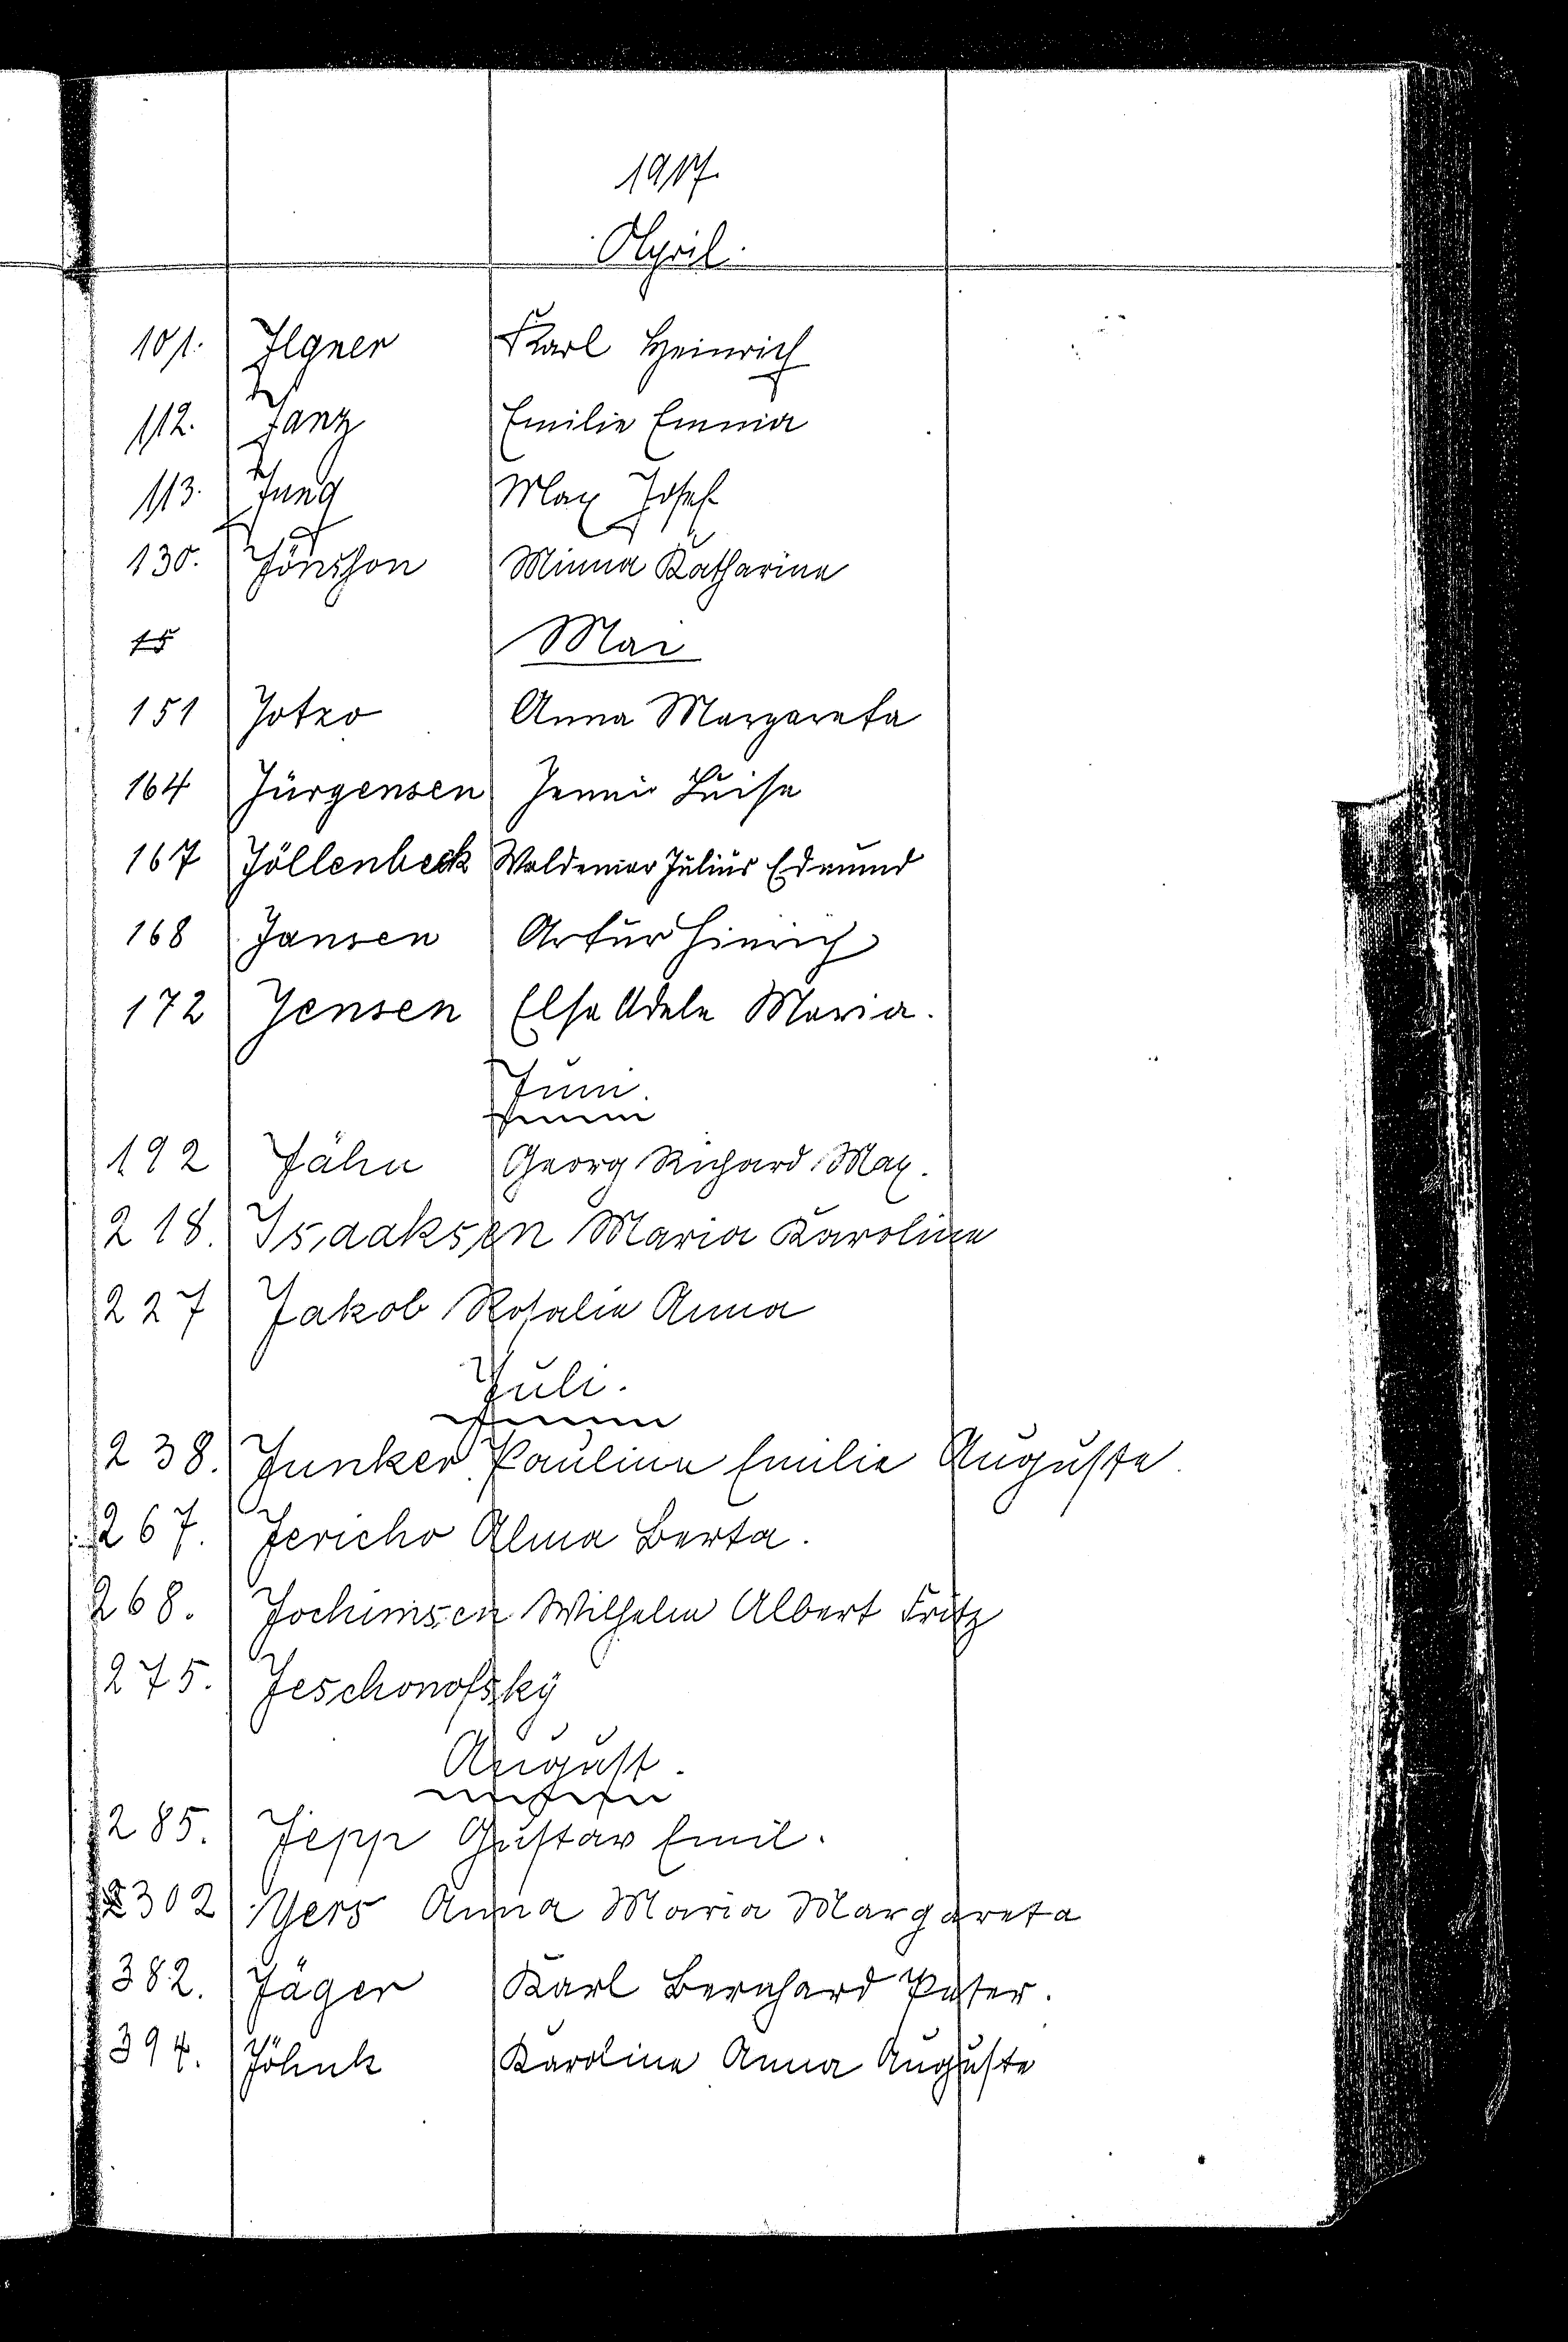 1917.
April.
101. Ilgner Karl Heinrich
112. Janz Emilie Emma
113. Jung Max Josef
130. Jönsson Minna Katharine
15 Mai
151 Jotzo Anna Margareta
164 Jürgensen Jenni Luise
167 Jöllenbeck Waldemar Julius Edmund
168 Jansen Artur Hinrich
172 Jensen Else Adele Maria.
Juni.
192 Jähn Georg Richard Max.
218. Isaaksen Maria Karoline
227 Jakob Rosalie Anna
Juli.
238. Junker Pauline Emilie Auguste.
267. Jericho Alma Berta.
268. Jochimsen Wilhelm Albert Fritz
275. Jeschonofsky
August.
285. Jepp Gustav Emil.
302 Yers Anna Maria Margareta
382. Jäger Karl Bernhard Peter.
394. Jöhnk Karoline Anna Auguste